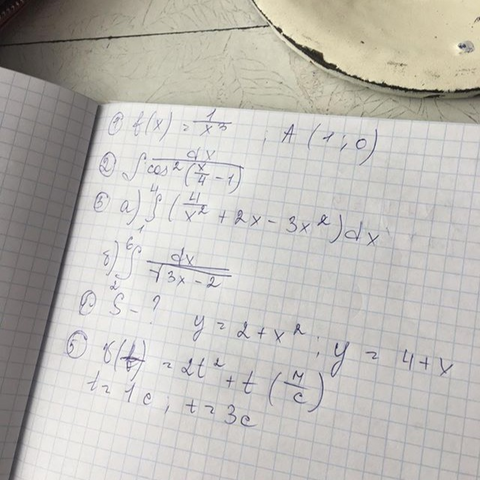 ① f(x) = 1/x³ , A (1; 0)
② ∫ dx / cos² (x/4 - 1)
③ а) ∫₁⁴ (4/x² + 2x - 3x²) dx
б) ∫₂⁶ dx / √(3x - 2)
S - ? y = 2 + x² ; y = 4 + x
⑤ (t) = 2t² + t (м/с)
t = 1c ; t = 3c